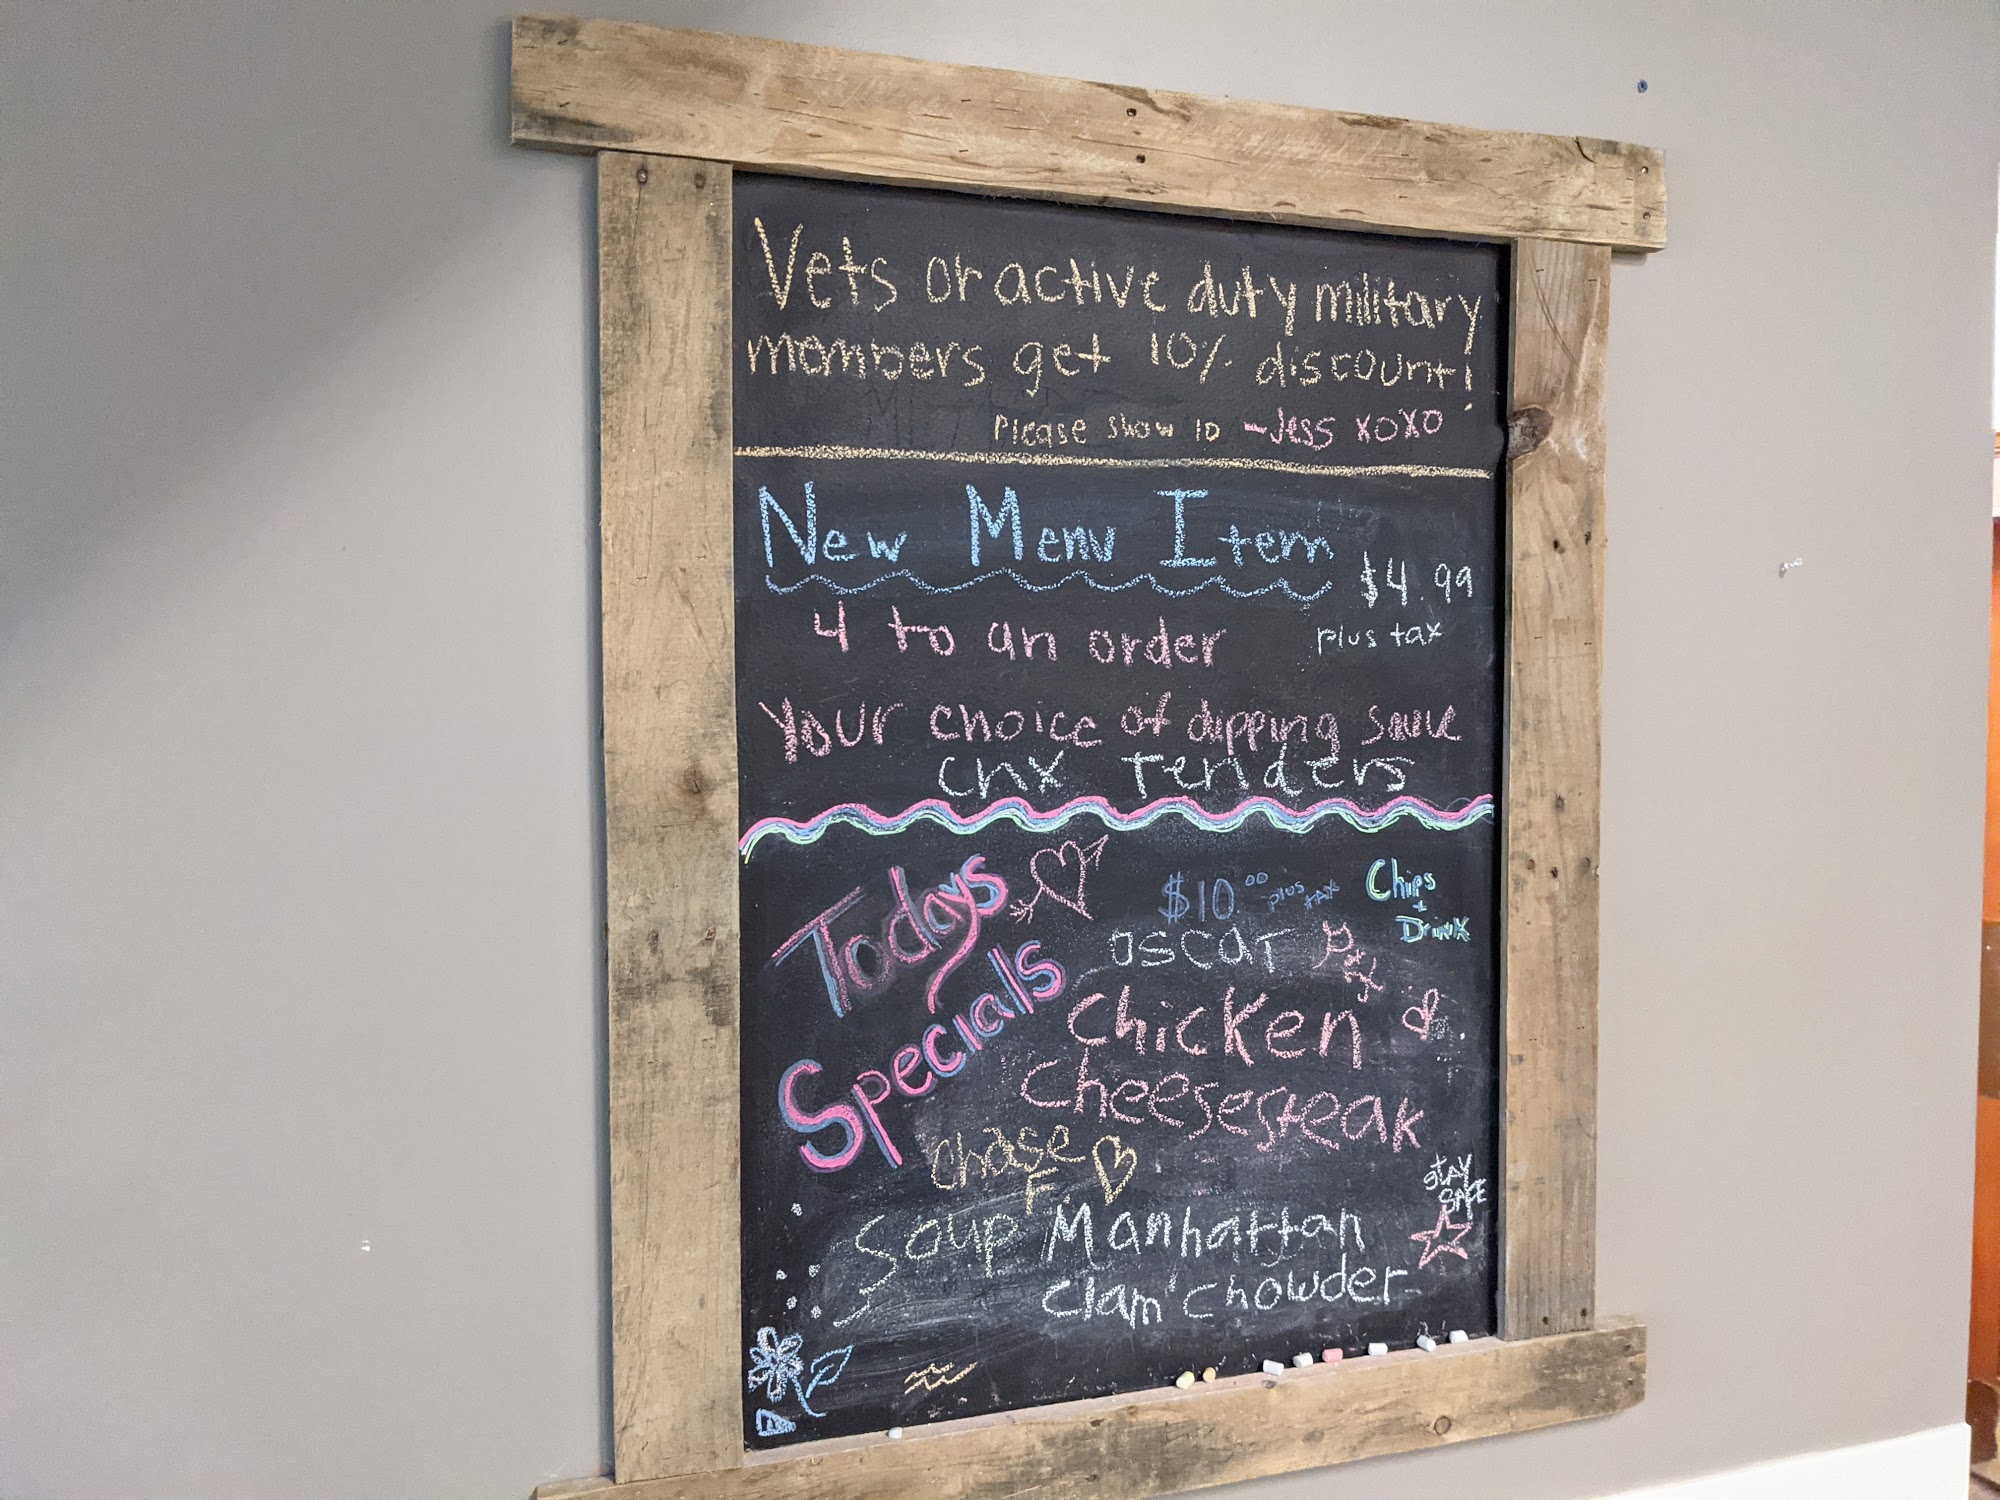 Vets or active duty military
members get 10% discount!
Please show ID -Jess xoxo
New Menu Item
$4.99
plus tax
4 to an order
Your choice of dipping sauce
chx Tenders
Todays
Specials
$10.00 plus tax
Chips
+
Drink
oscar
Chicken
Cheesesteak
Chase
F.
Soup Manhattan
Clam Chowder
STAY
SAFE